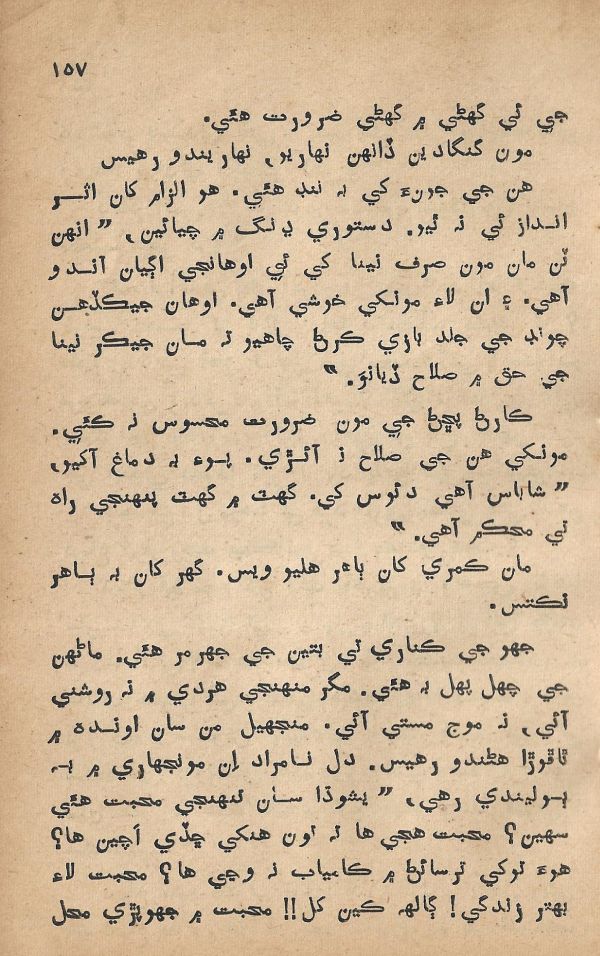 ١٥٧
جي ئي گهڻي ۾ گهڻي ضرورت هئي.
مون گنگادين ڏانهن نهاريو، نهاريندو رهيس
هن جي جوڻءَ کي به ننڊ هئي. هو الزام کان اثر
انداز ئي نه ٿيو. دستوري ڍنگ ۾ چيائين، ”انهن
ٽن مان مون صرف نينا کي ئي اوهانجي اڳيان آندو
آهي. ۽ ان لاءِ مونکي خوشي آهي. اوهان جيڪڏهن
چونڊ جي جلد بازي ڪرڻ چاهيو ته مان جيڪر نينا
جي حق ۾ صلاح ڏيانوَ.“
ڪارڻ پڇڻ جي مون ضرورت محسوس نه ڪئي.
مونکي هن جي صلاح نه آئڙي. پوءِ به دماغ آکيو،
”شاباس آهي دئوس کي. گهٽ ۾ گهٽ پنهنجي راه
تي محڪم آهي.“
مان ڪمري کان ٻاهر هليو ويس. گهر کان به ٻاهر
نڪتس.
جهو جي ڪناري تي بتين جي جهرمر هئي. ماڻهن
جي چهل پهل به هئي. مگر منهنجي هردي ۾ نه روشني
آئي، نه موج مستي آئي. منجهيل من سان اونده ۾
ٿاٿوڙا هڻندو رهيس. دل نامراد اِن مونجهاري ۾ به
ٻوليندي رهي، ”يشوڌا سان تنهنجي محبت هئي
سهين؟ محبت هجي ها ته تون هنکي ڇڏي اَچين ها؟
هوءَ توکي ترسائڻ ۾ ڪامياب نه وڃي ها؟ محبت لاءِ
بهتر زندگي! ڳالهه ڪين کل!! محبت ۾ جهوپڙي محل